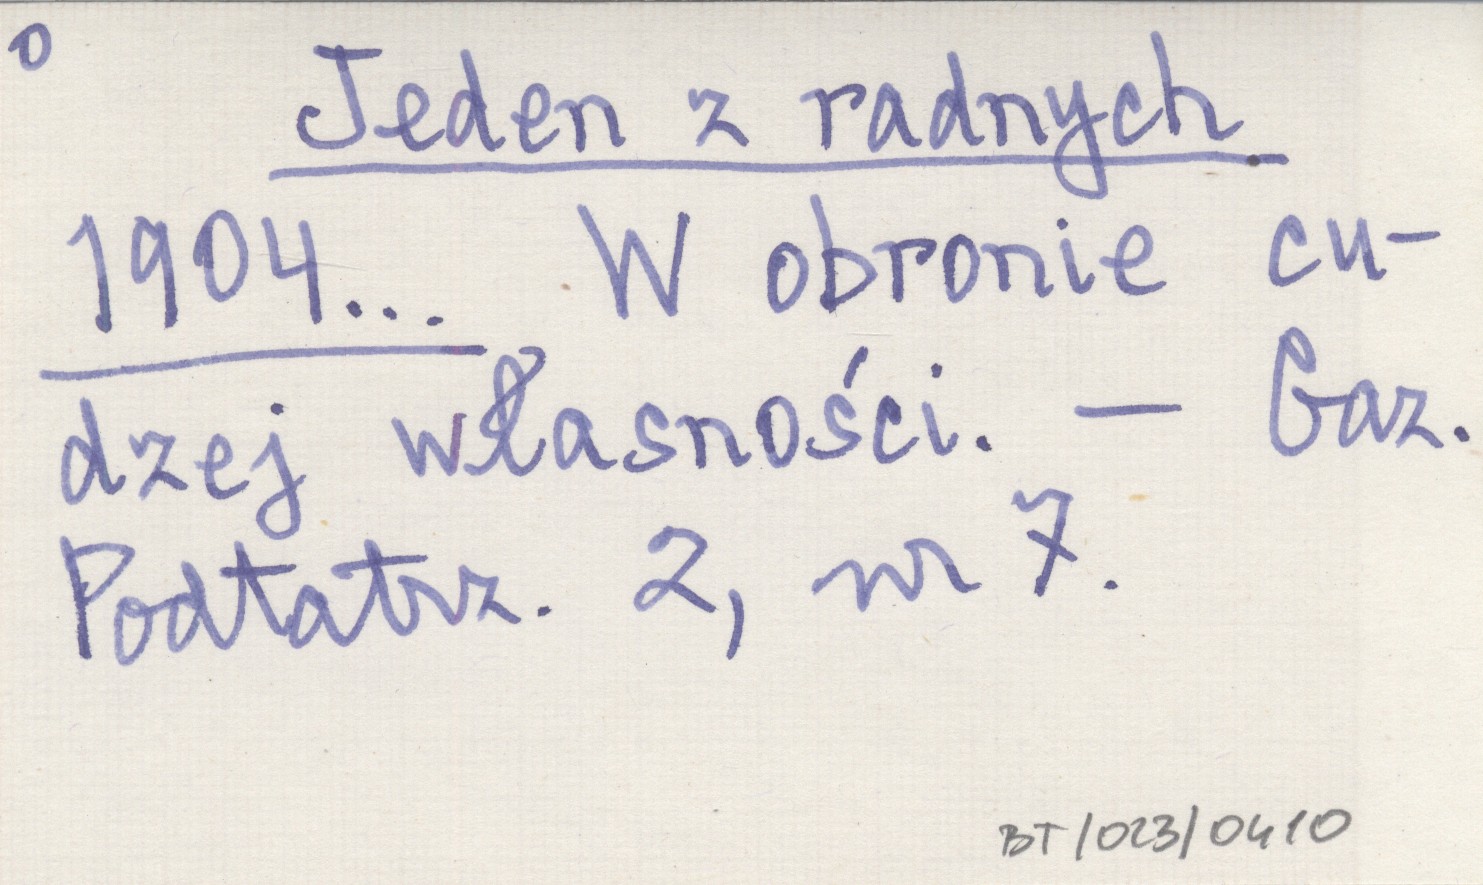 0
Jeden z radnych
1904... W obronie cu-
dzej własności. — Gaz.
Podtatrz. 2, nr 7.
BT/023/0410